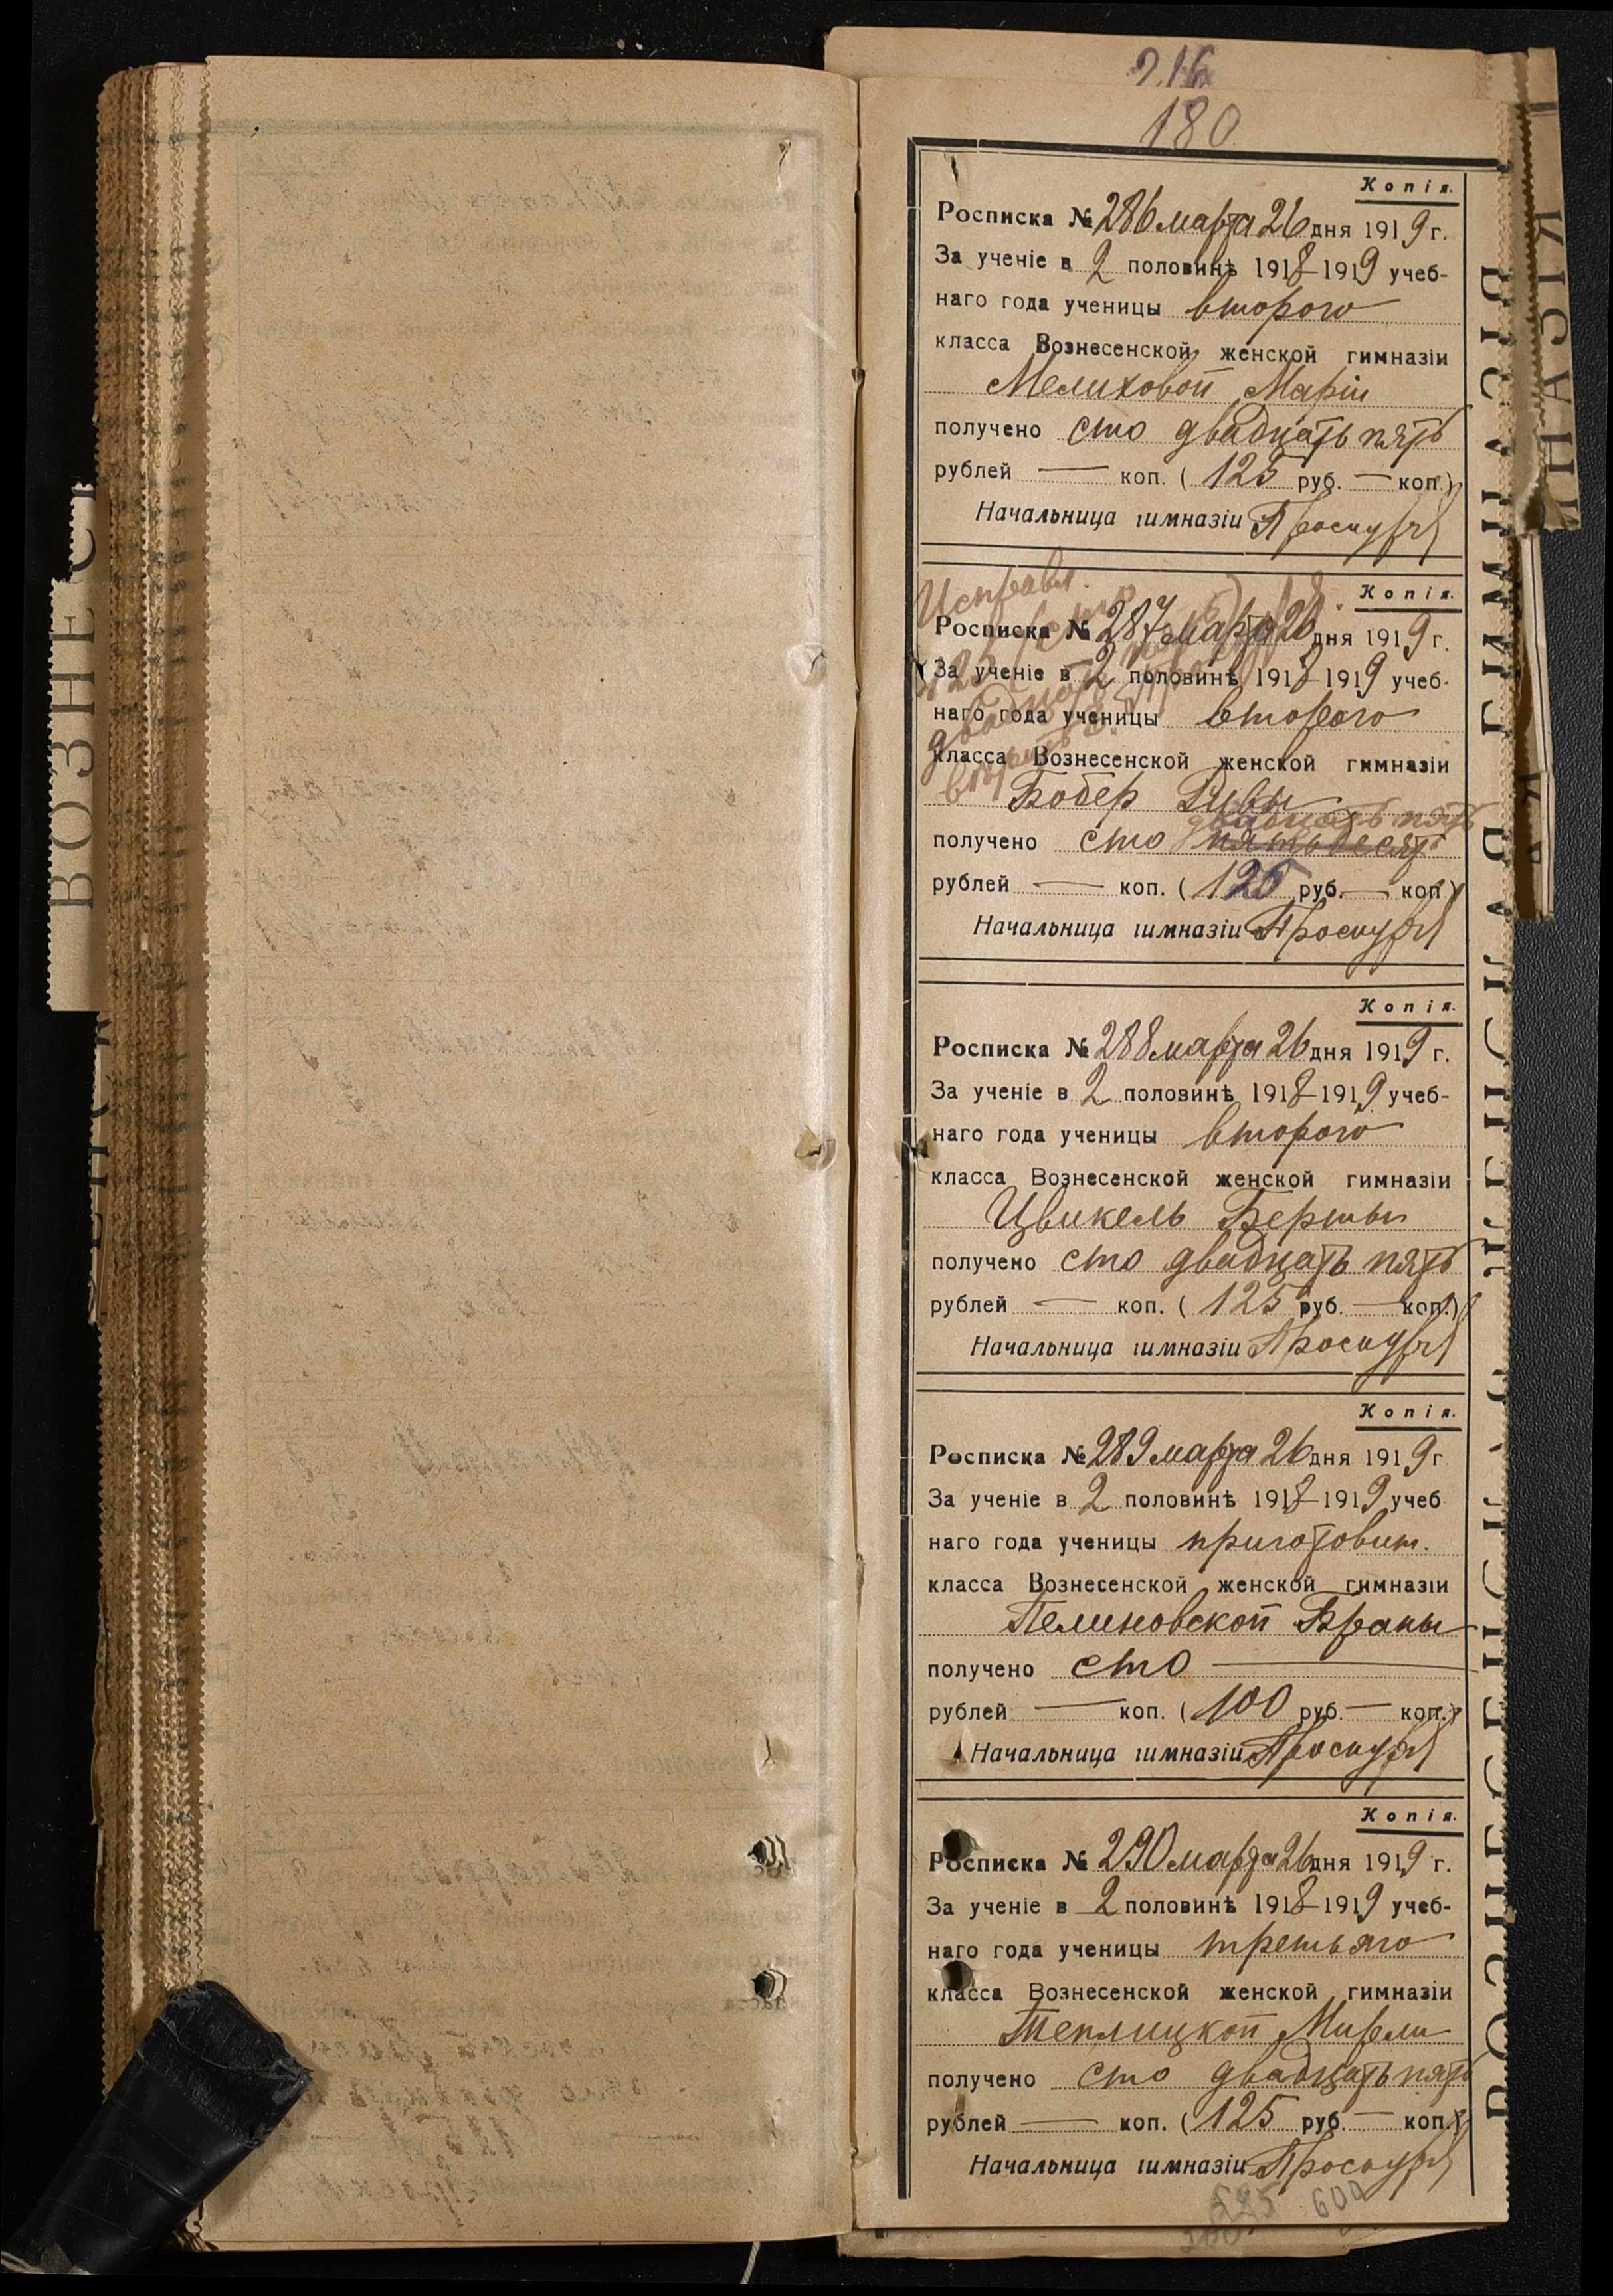 216
180
Копія.
Росписка № 286 марта 26 дня 1919 г.
За ученіе в 2 половинѣ 1918-1919 учеб-
наго года ученицы второго
класса Вознесенской женской гимназіи
Мелиховой Маріи
получено сто двадцать пять
рублей — коп. (125 руб. — коп.)
Начальница гимназіи
Исправл.
Копія.
Росписка № 287 марта 26 дня 1919 г.
За ученіе в 2 половинѣ 1918-1919 учеб-
наго года ученицы второго
класса Вознесенской женской гимназіи
Бобер Ривы
двадцать пять
получено сто пятьдесят
рублей — коп. (125 руб. — коп.)
Начальница гимназіи
Копія.
Росписка № 288 марта 26 дня 1919 г.
За ученіе в 2 половинѣ 1918-1919 учеб-
наго года ученицы второго
класса Вознесенской женской гимназіи
Цвикель Берты
получено сто двадцать пять
рублей — коп. (125 руб. — коп.)
Начальница гимназіи
Копія.
Росписка № 289 марта 26 дня 1919 г
За ученіе в 2 половинѣ 1918-1919 учеб
наго года ученицы приготовит.
класса Вознесенской женской гимназіи
Пелиновской Браны
получено сто —
рублей — коп. (100 руб. — коп.)
Начальница гимназіи
Копія.
Росписка № 290 марта 26 дня 1919 г.
За ученіе в 2 половинѣ 1918-1919 учеб-
наго года ученицы третьяго
класса Вознесенской женской гимназіи
Теплицкой Мирли
получено сто двадцать пять
рублей — коп. (125 руб. — коп.)
Начальница гимназіи
600
ВОЗНЕС